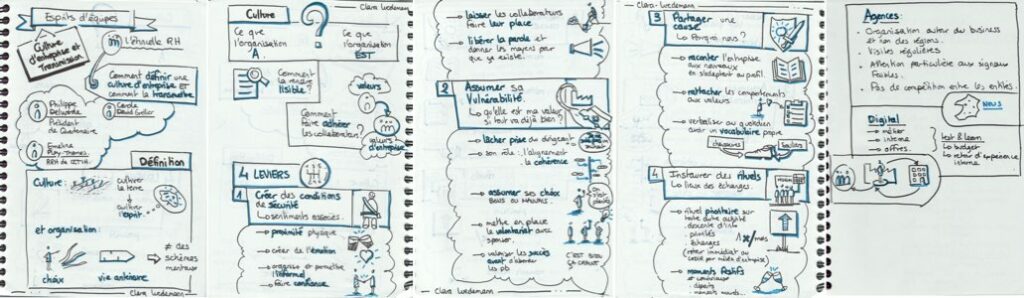 Esprits d'équipes
Culture
d'entreprise et
Transmission
l'étincelle RH
Comment définir une
culture d'entreprise et
comment la transmettre
Philippe
Delwarde
Président
de Quaternaire
Carole
David
Emeline
RRH de
Définition
Culture :
cultiver
la terre
cultiver
l'esprit
et organisation
choix
vie antérieure
≠ des
schémas
mentaux
Clara Luedemann
Culture
?
Ce que
l'organisation
A.
Ce que
l'organisation
EST
Comment
la rendre
lisible ?
valeurs
valeurs
d'entreprise
Comment
faire adhérer
les collaborateurs ?
4 LEVIERS
1
Créer des conditions
de sécurité
sentiments associés.
→ proximité physique
→ créer de l'émotion
→ organise et permettre
l'informel
→ faire confiance
→ laisser les collaborateurs
faire leur place
→ libérer la parole et
donner les moyens pour
que ça existe.
2
Assumer sa
Vulnérabilité.
Lo qu'elle est ma valeur
si tout va déjà bien ?
→ lâcher prise du dirigeant
→ son rôle : l'alignement
la cohérence
→ assumer ses choix
BONS ou MAUVAIS.
→ mettre en place
le volontariat avec
sponsor.
→ valoriser les succès
avant d'aborder
les pb
C'EST BIEN
ÇA
Clara Luedemann
Clara Luedemann
3
Partager une
cause
Lo Pourquoi nous ?
→ raconter l'entreprise
aux nouveaux
en s'adaptant au profil.
→ rattacher les comportements
aux valeurs
→ verbaliser au quotidien
avec un vocabulaire propre
chaussures
souliers
4
Instaurer des rituels
Lo lieux des échanges.
→ rituel prioritaire sur
toute autre activité
descente d'info
priorités
échanges
1x/mois
→ moments festifs
et conviviaux
départs
Agences:
- Organisation autour du business
et non des régions.
- Visites régulières
- Attention particulière aux signaux
faibles.
- Pas de compétition entre les entités.
NOUS
Digital
→ métier
→ interne
→ offres.
test & learn
Lo budget
Lo retour d'expérience
interne